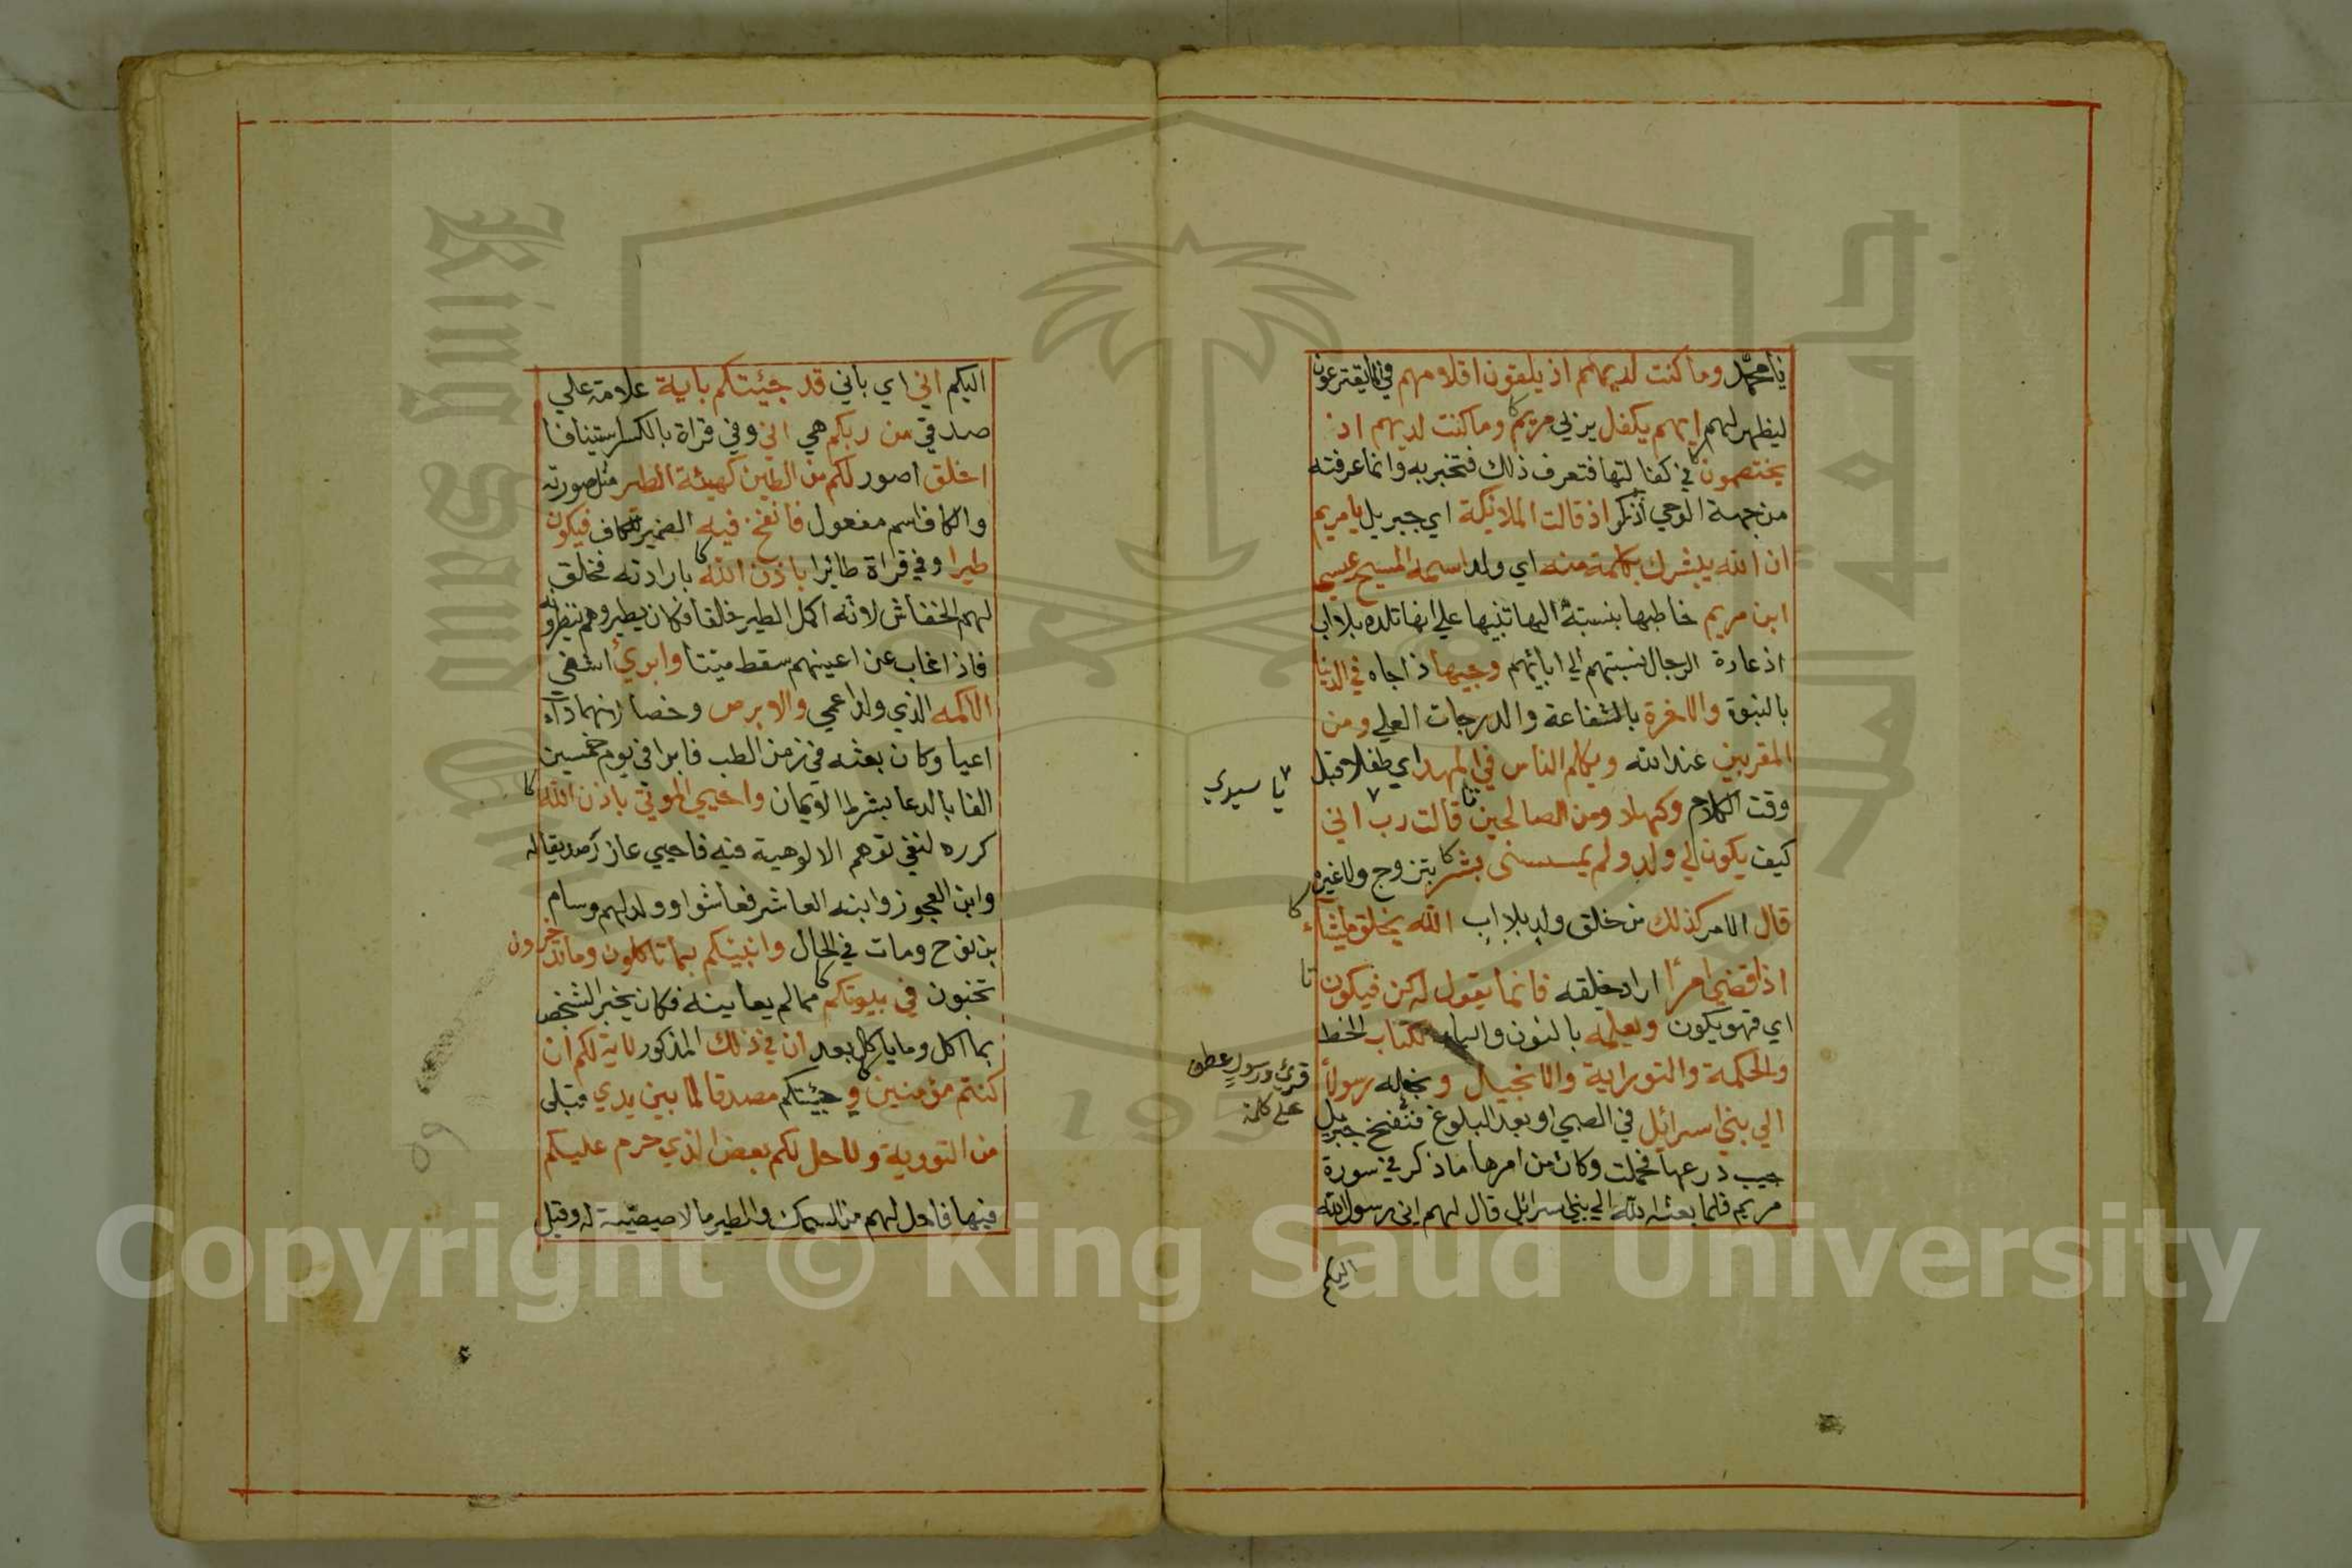 يا محمد وما كنت لديهم اذ يلقون اقلامهم في الما يقترعون
ليظهر لهم ايهم يكفل يربي مريم وما كنت لديهم اذ
يختصمون في كفالتها فتعرف ذلك فتخبر به وانما عرفته
من جهة الوحي اذكر اذ قالت الملائكة اي جبريل يا مريم
ان الله يبشرك بكلمة منه اي ولد اسمه المسيح عيسى
ابن مريم خاطبها بنسبته اليها تنبيها على انها تلده بلا اب
اذ عادة الرجال نسبتهم الى ابائهم وجيها ذا جاه في الدنيا
بالنبوة والاخرة بالشفاعة والدرجات العلي ومن
المقربين عند الله ويكلم الناس في المهد اي طفلا قبل
وقت الكلام وكهلا ومن الصالحين قالت رب اني
يا سيدي
كيف يكون لي ولد ولم يمسسنى بشر بتزوج ولا غيره
قال الامر كذلك من خلق ولد بلا اب الله يخلق ما يشاء
اذا قضي امرا اراد خلقه فانما يقول له كن فيكون
اي فهو يكون ونعلمه بالنون والياء الكتاب الخط
والحكمة والتوراية والانجيل ونجعله رسولا
قرئ ورسول عطف
على كلمة
الي بني اسرائيل في الصبي او بعد البلوغ فنفخ جبريل
جيب درعها فحملت وكان من امرها ما ذكر في سورة
مريم فلما بعثه الله الي بني اسرائيل قال لهم اني رسول الله
اليكم
اليكم اني اي باني قد جيئتكم باية علامة علي
صدقي من ربكم هي اني وفي قراة بالكسر استينافا
اخلق اصور لكم من الطين كهيئة الطير مثل صورته
والكاف اسم مفعول فانفخ فيه الضمير للكاف فيكون
طيرا وفي قراة طائرا باذن الله بارادته فخلق
لهم الخفاش لانه اكمل الطير خلقا فكان يطير وهم ينظرونه
فاذا غاب عن اعينهم سقط ميتا وابرئ اشفي
الاكمه الذي ولد اعمي والابرص وخصا لانهما داآ
اعيا وكان بعثه في زمن الطب فابرا في يوم خمسين
الفا بالدعا بشرط الايمان واحيي الموتي باذن الله
كرره لنفي توهم الالوهية فيه فاحيي عازر صديقا له
وابن العجوز وابنه العاشر فعاشوا وولد لهم وسام
بن نوح ومات في الحال وانبئكم بما تاكلون وما تدخرون
تخبون في بيوتكم مما لم يعاينه فكان يخبر الشخص
بما اكل وما ياكل بعد ان في ذلك المذكور لاية لكم ان
كنتم مؤمنين و جيئتكم مصدقا لما بين يدي قبلي
من التورية ولاحل لكم بعض الذي حرم عليكم
فيها فاحل لهم من السمك والطير ما لا صيصية له وقيل
جامعة الملك سعود
King Saud University
1957
Copyright © King Saud University